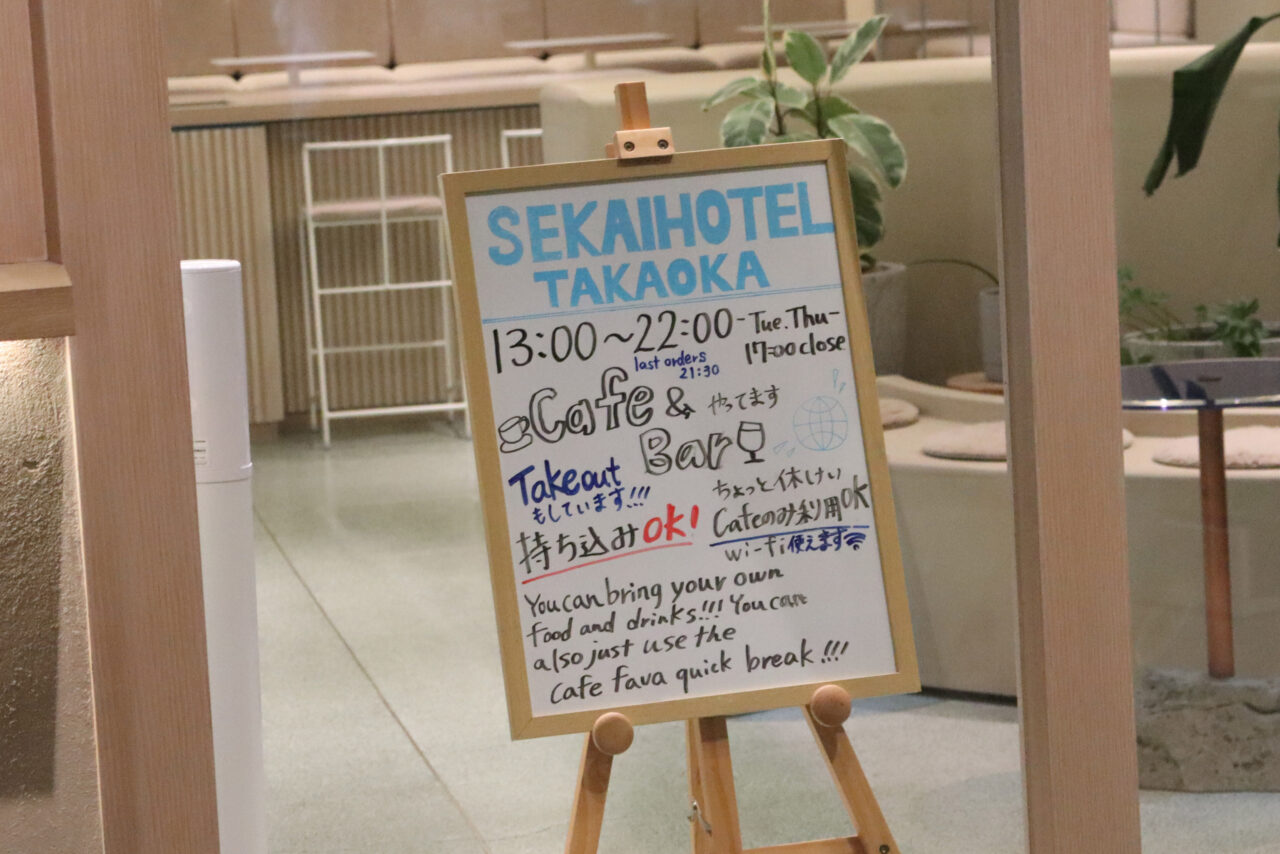 SEKAIHOTEL
TAKAOKA
13:00~22:00 -Tue.Thu-
17:00 close
last orders
21:30
Cafe & やってます
Bar
Takeout
もしています!!!
ちょっと休けい
持ち込みOK!
Cafeのみ利用OK
wi-fi使えます
You can bring your own
food and drinks!!! You can
also just use the
cafe fava quick break!!!